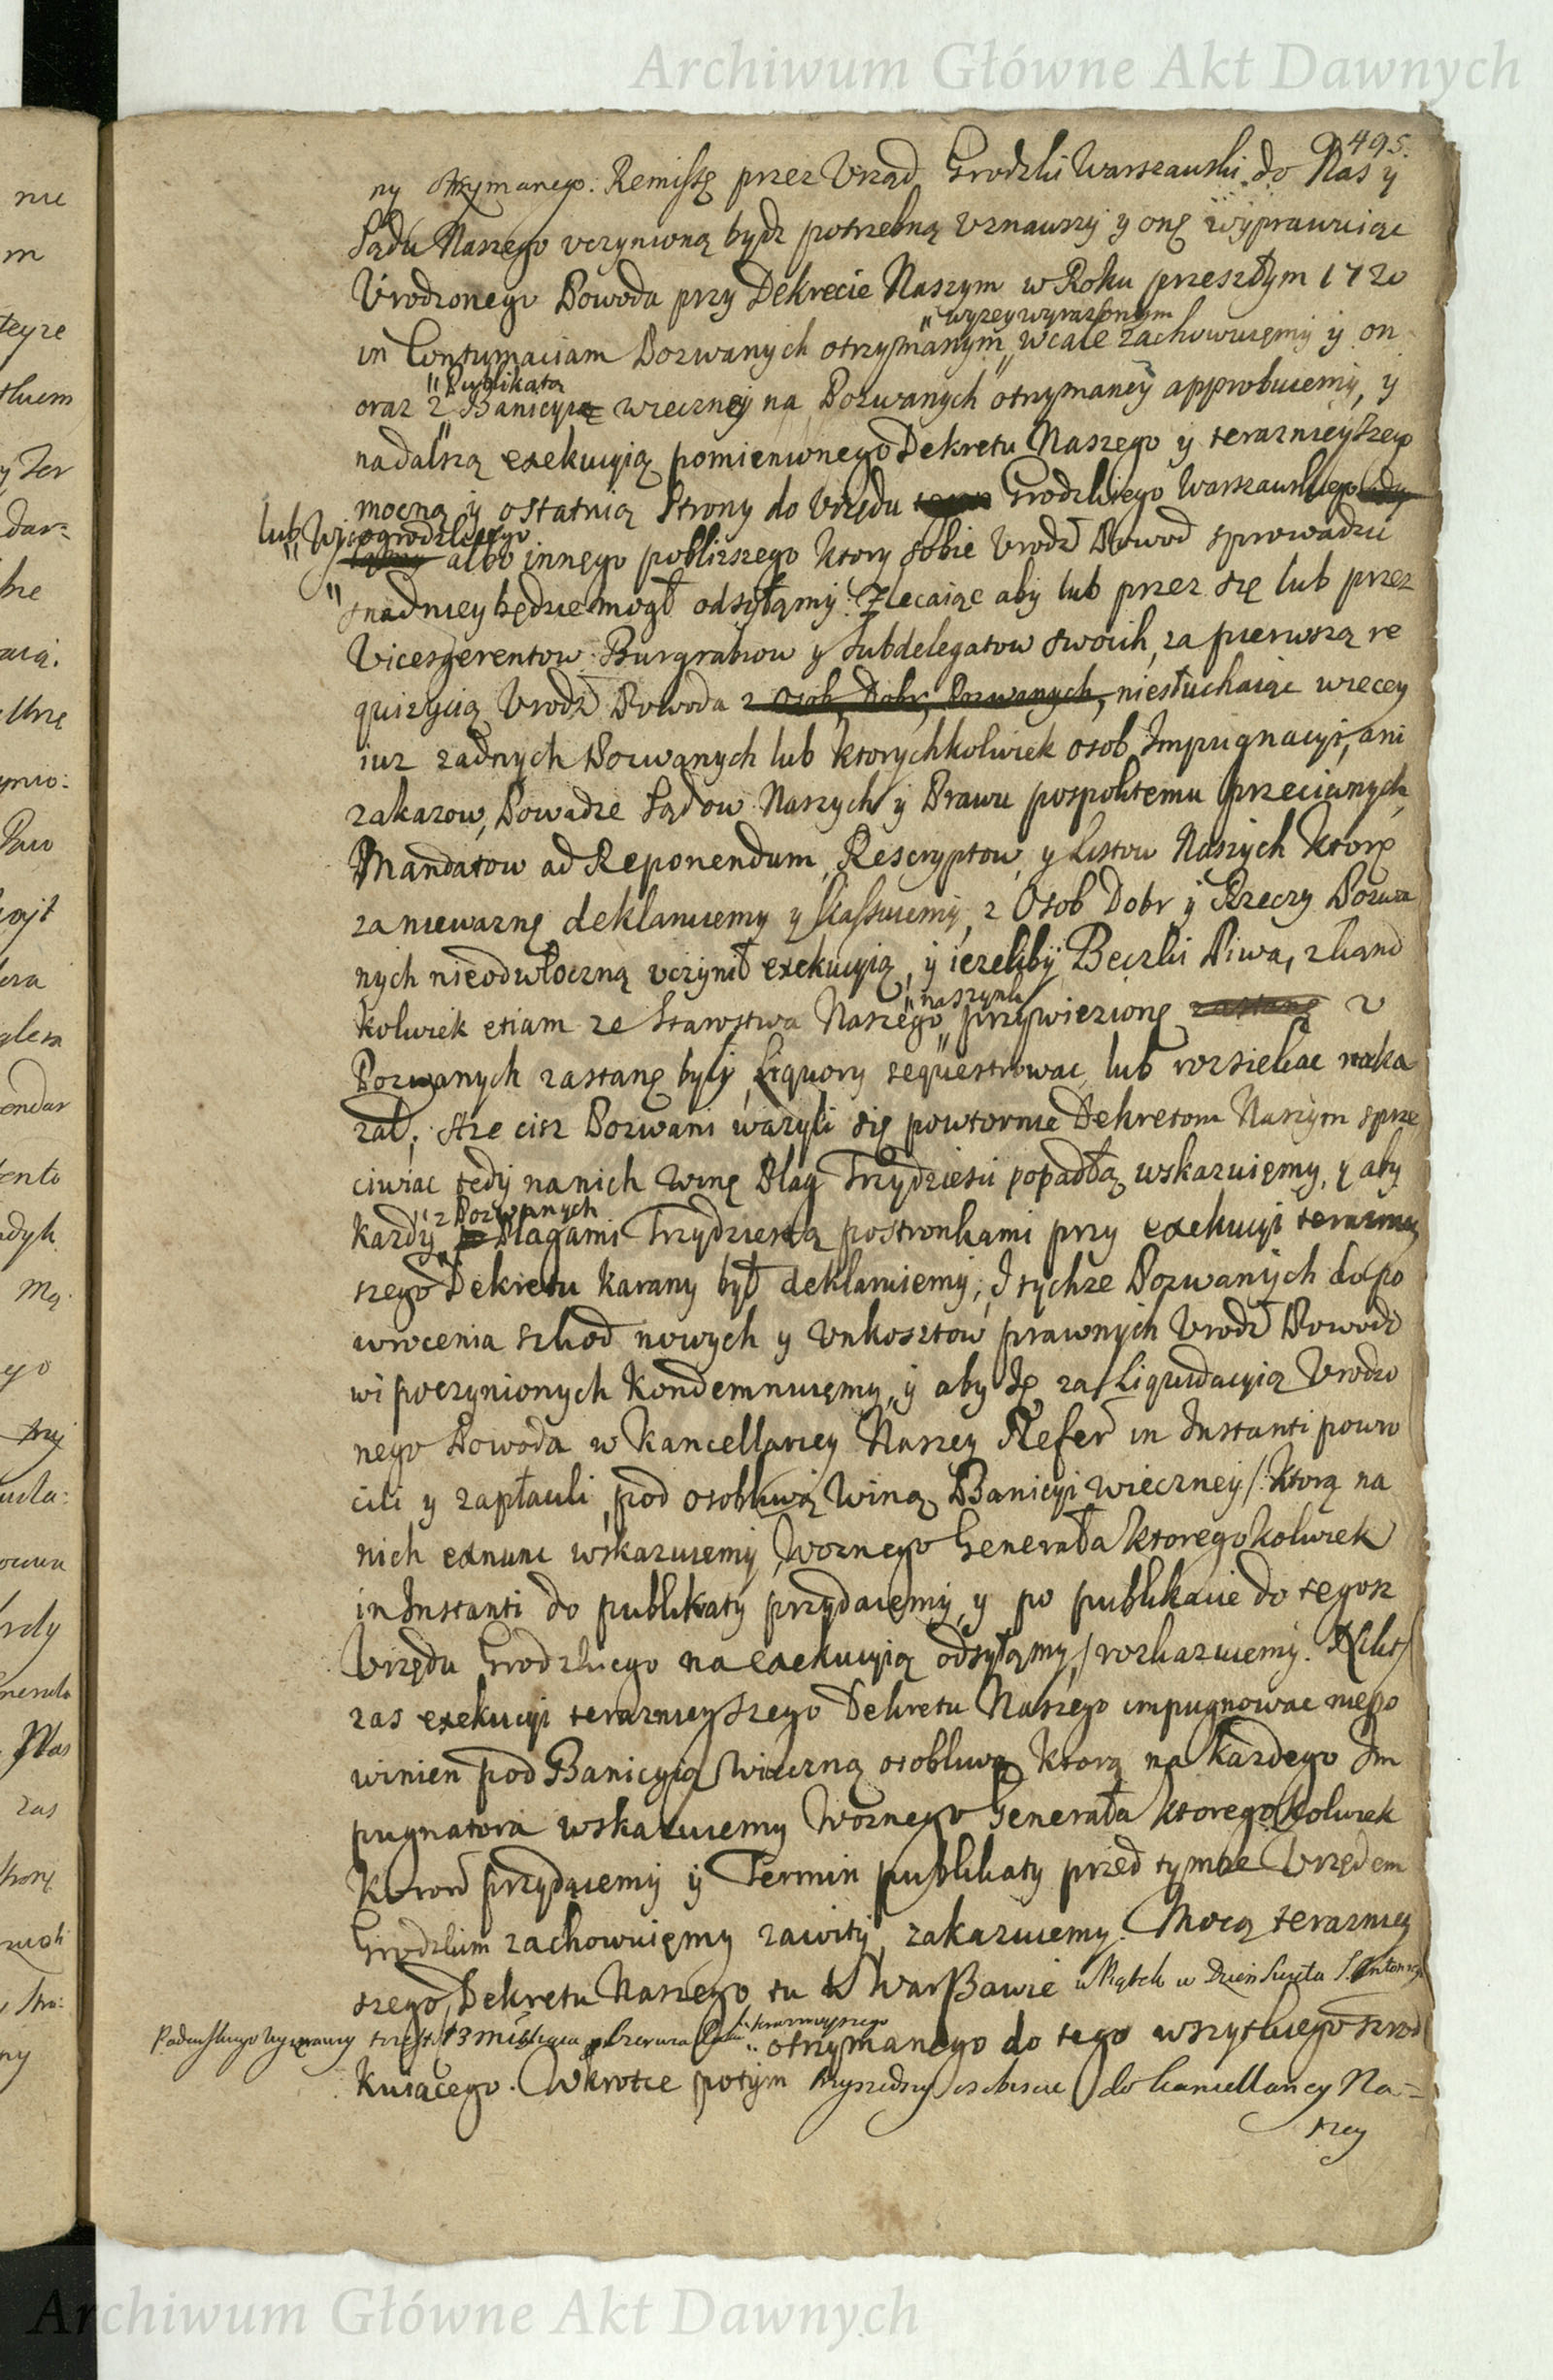 Archiwum Główne Akt Dawnych
495.
ny otrzymanego. Remissę przez Vrząd Grodzki Warszawski do Nas y
Sądu Naszego vczynioną bydz potrzebną vznawszy y onę wyprawuiąc
Vrodzonego Powoda przy Dekrecie Naszym w Roku przeszłym 1720
in Contumaciam Pozwanych otrzymanym wyzey wyrazonym wcale zachowuięmy y on
oraz z Publikatą Banicyią wieczney na Pozwanych otrzymaney approbuiemy, y
na dalszą exekucyią pomienionego Dekretu Naszego y teraznieyszego
mocną y ostatnią Strony do Vrzędu Grodzkiego Warszawskiego
lub Wyszogrodzkiego albo innego poblizszego ktory sobie Vrodz Powod sprowadzić
snadniey będzie mogł odsyłamy. Zlecaiąc aby lub przez się lub przez
Vicesgerentow Burgrabiow y Subdelegatow swoich, za pierwszą re
quizycią Vrodz Powoda z Osob, Dobr, Pozwanych, niesłuchaiąc więcey
iuz zadnych Pozwanych lub ktorychkolwiek osob Impugnacyi, ani
zakazow, Powadze Sądow Naszych y Prawu pospolitemu przeciwnych,
Mandatow ad Reponendum, Rescryptow, y Listow Naszych ktorę
za niewaznę deklaruiemy y kassuiemy, z Osob Dobr y Rzeczy Pozwa
nych nieodwłoczną vczynił exekucyią, y iezeliby Beczki Piwa, zkąnd
kolwiek etiam ze Starostwa Naszego naszynk przywiezionę zastanę v
Pozwanych zastanę były Liquory sequestrowac, lub rozsiekac naka
zał, Aze cisz Pozwani wazyli się powtornie Dekretom Naszym sprze
ciwiac tedy na nich winę Plag Trzydziesci popadłą wskazuięmy, y aby
kazdy z Pozwanych Plagami Trzydziestą postronkami przy exekucyi teraznie
szego Dekretu karany był deklaruiemy, I tychze Pozwanych do po
wrocenia szkod nowych y Vnkosztow prawnych Vrodz Powodo
wi poczynionych kondemnuięmy, y aby Ię za Liquidacyią Vrodzo
nego Powoda w Kancellaryey Naszey Refer in Instanti powro
cili y zapłacili pod osobliwą Winą Banicyi wieczney /: ktorą na
nich exnunc wskazuiemy, Woznego Generała ktoregokolwiek
in Instanti do publikaty przydaiemy, y po publikacie do tegosz
Vrzędu Grodzkiego na exekucyią odsyłamy :/ rozkazuiemy. Nikt
zas exekucyi teraznieyszego Dekretu Naszego impugnowac niepo
winien pod Banicyią Wieczną osobliwą ktorą na kazdego Im
pugnatora wskazuiemy Woznego Generała ktoregokolwiek
przydaiemy y Termin publikaty przed tymze Vrzędem
Grodzkim zachowuięmy zawity, zakazuiemy. Mocą teraznie
szego Dekretu Naszego tu w Warszawie w Piątek w Dzien Święta S. Antoniego
Padewskiego Wyznawcy to iest 13 miesiąca Czerwca Roku teraznieyszego otrzymanego do tego wszytkiego szrod
kuiącego. Wkrotce potym przyszedszy osobiscie do kancellaryey Na=
szey
Archiwum Główne Akt Dawnych